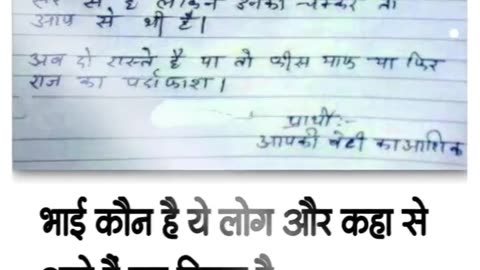 सर से है लेकिन उनका चक्कर तो
आप से भी है।
अब दो रास्ते है या तो फीस माफ या फिर
राज का पर्दाफाश।
प्रार्थी:-
आपकी बेटी का आशिक
भाई कौन है ये लोग और कहा से